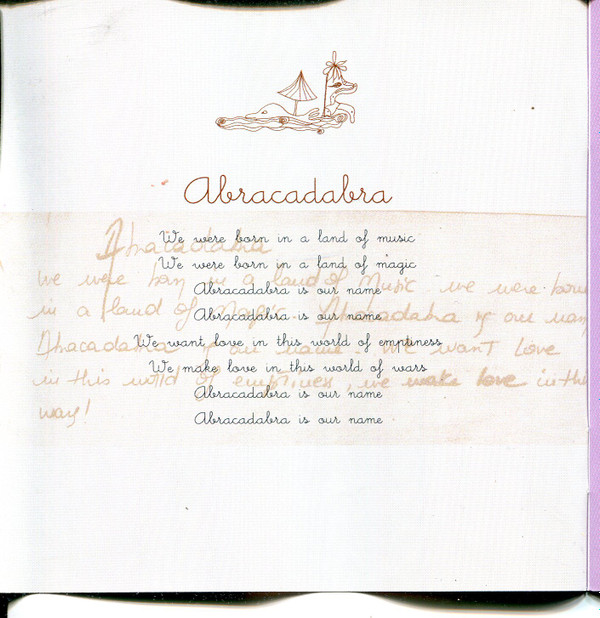 Abracadabra
We were born in a land of music
We were born in a land of magic
Abracadabra is our name
Abracadabra is our name
We want love in this world of emptiness
We make love in this world of wars
Abracadabra is our name
Abracadabra is our name
we were born in a land of music we were born
in a land of magic is our
our name. We want love
in this world of emptiness, we make love in this
way!